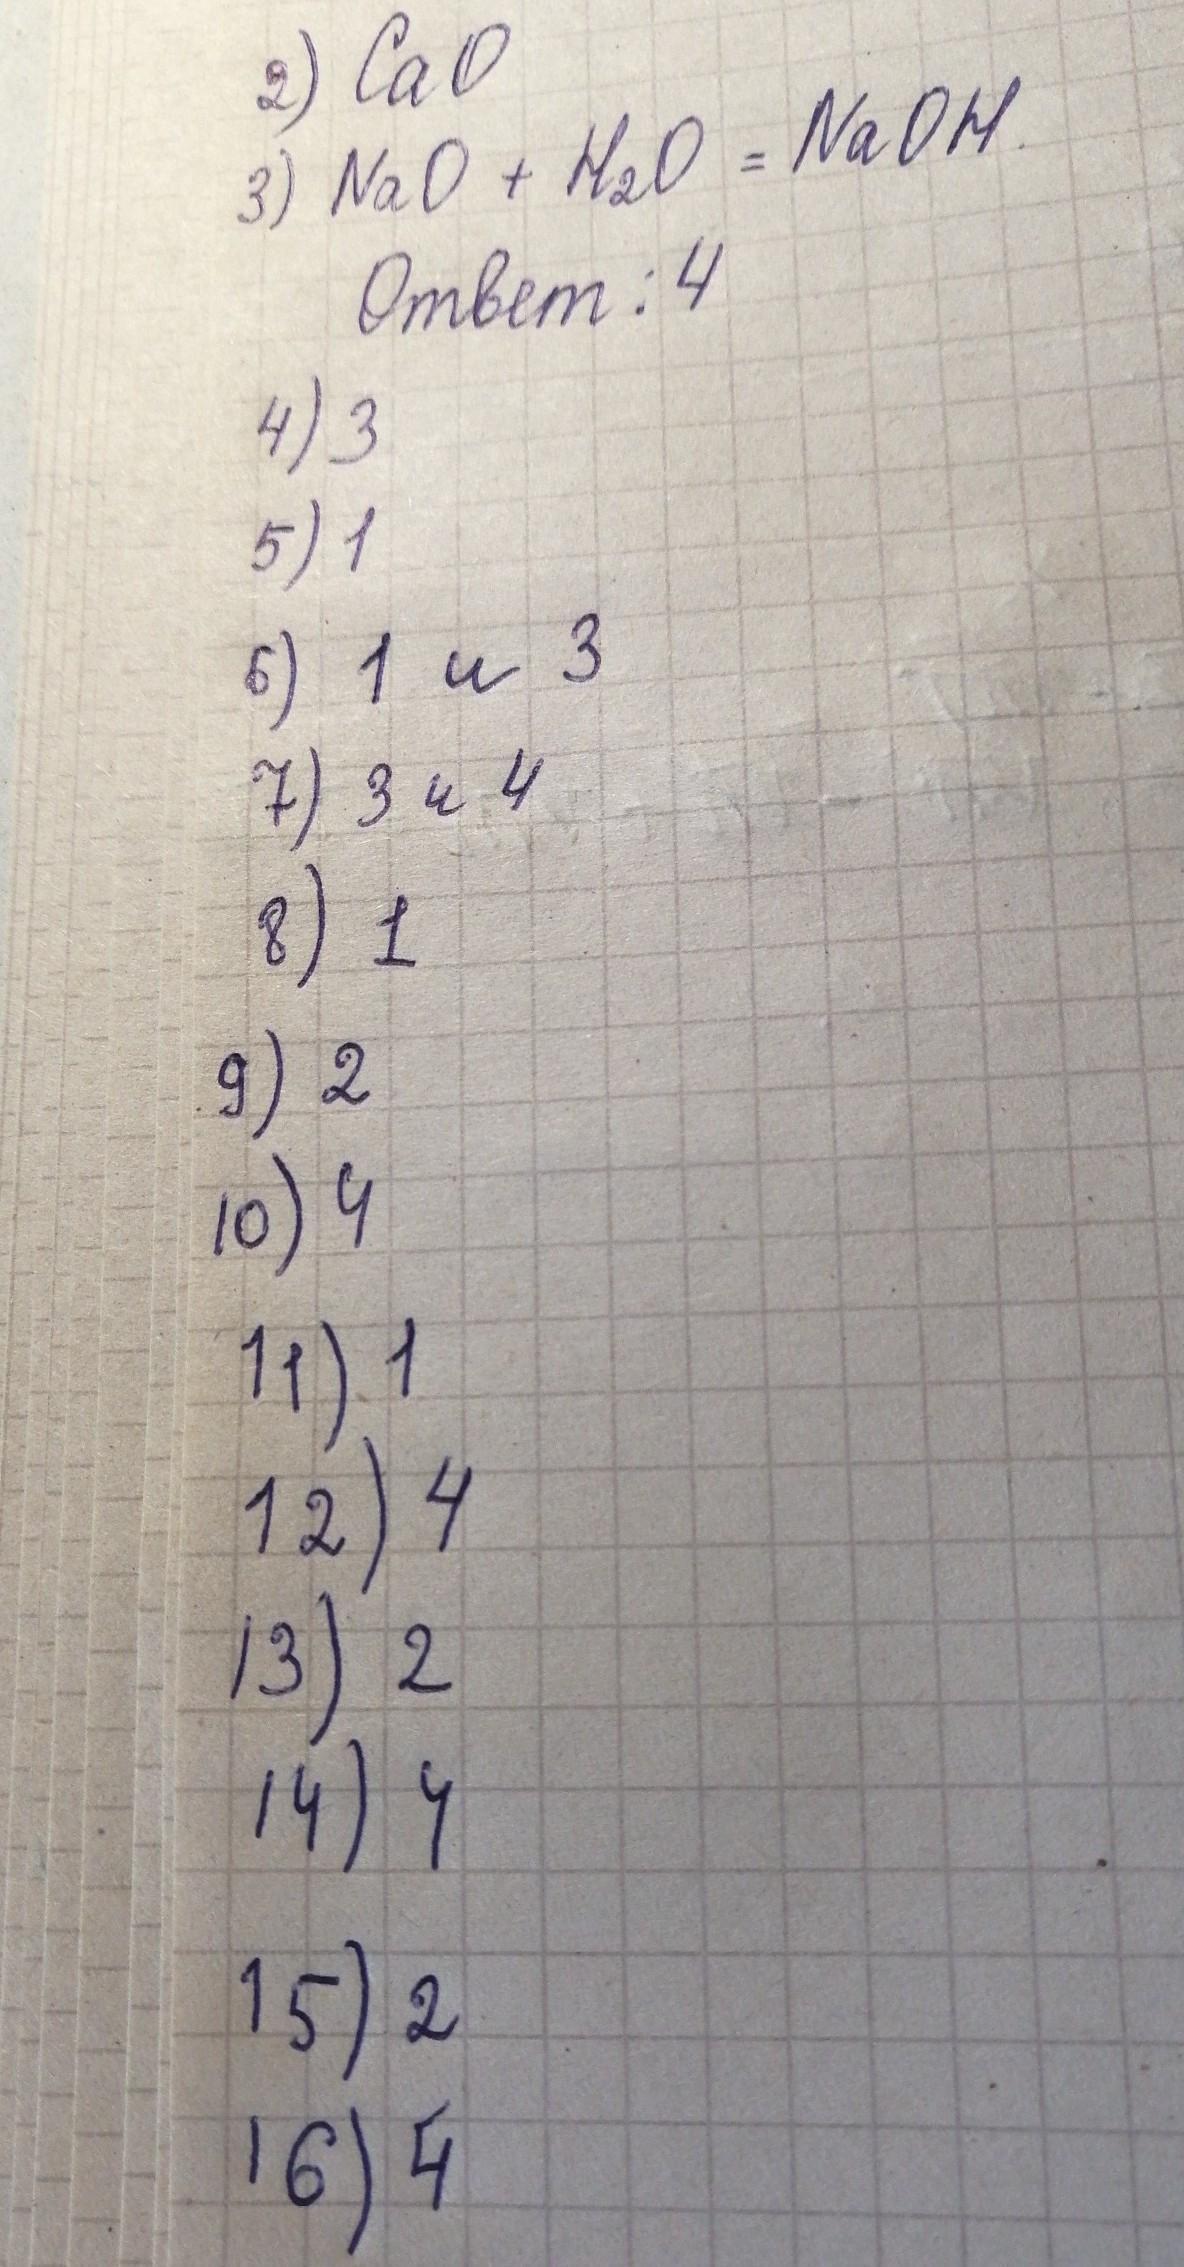 2) CaO
3) NaO + H₂O = NaOH.
Ответ: 4
4) 3
5) 1
6) 1 и 3
7) 3 и 4
8) 1
9) 2
10) 4
11) 1
12) 4
13) 2
14) 4
15) 2
16) 4